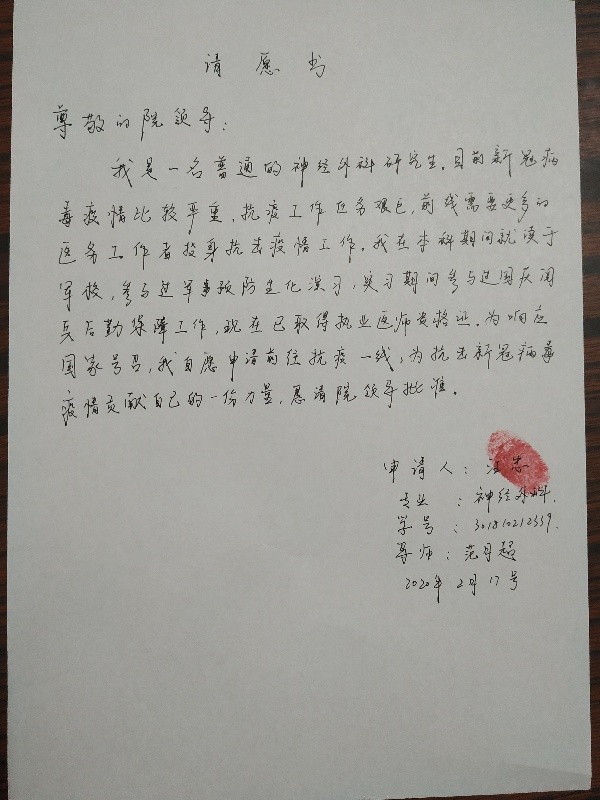 请愿书
尊敬的院领导：
我是一名普通的神经外科研究生。目前新冠病
毒疫情比较严重，抗疫工作任务艰巨，前线需要更多的
医务工作者投身抗击疫情工作。我在本科期间就读于
军校，参与过军事预防生化演习，见习期间参与过国庆阅
兵后勤保障工作，现在已取得执业医师资格证。为响应
国家号召，我自愿申请前往抗疫一线，为抗击新冠病毒
疫情贡献自己的一份力量，恳请院领导批准。
申请人：汪忠
专业：神经外科
学号：301810212359
导师：范月超
2020年2月17号